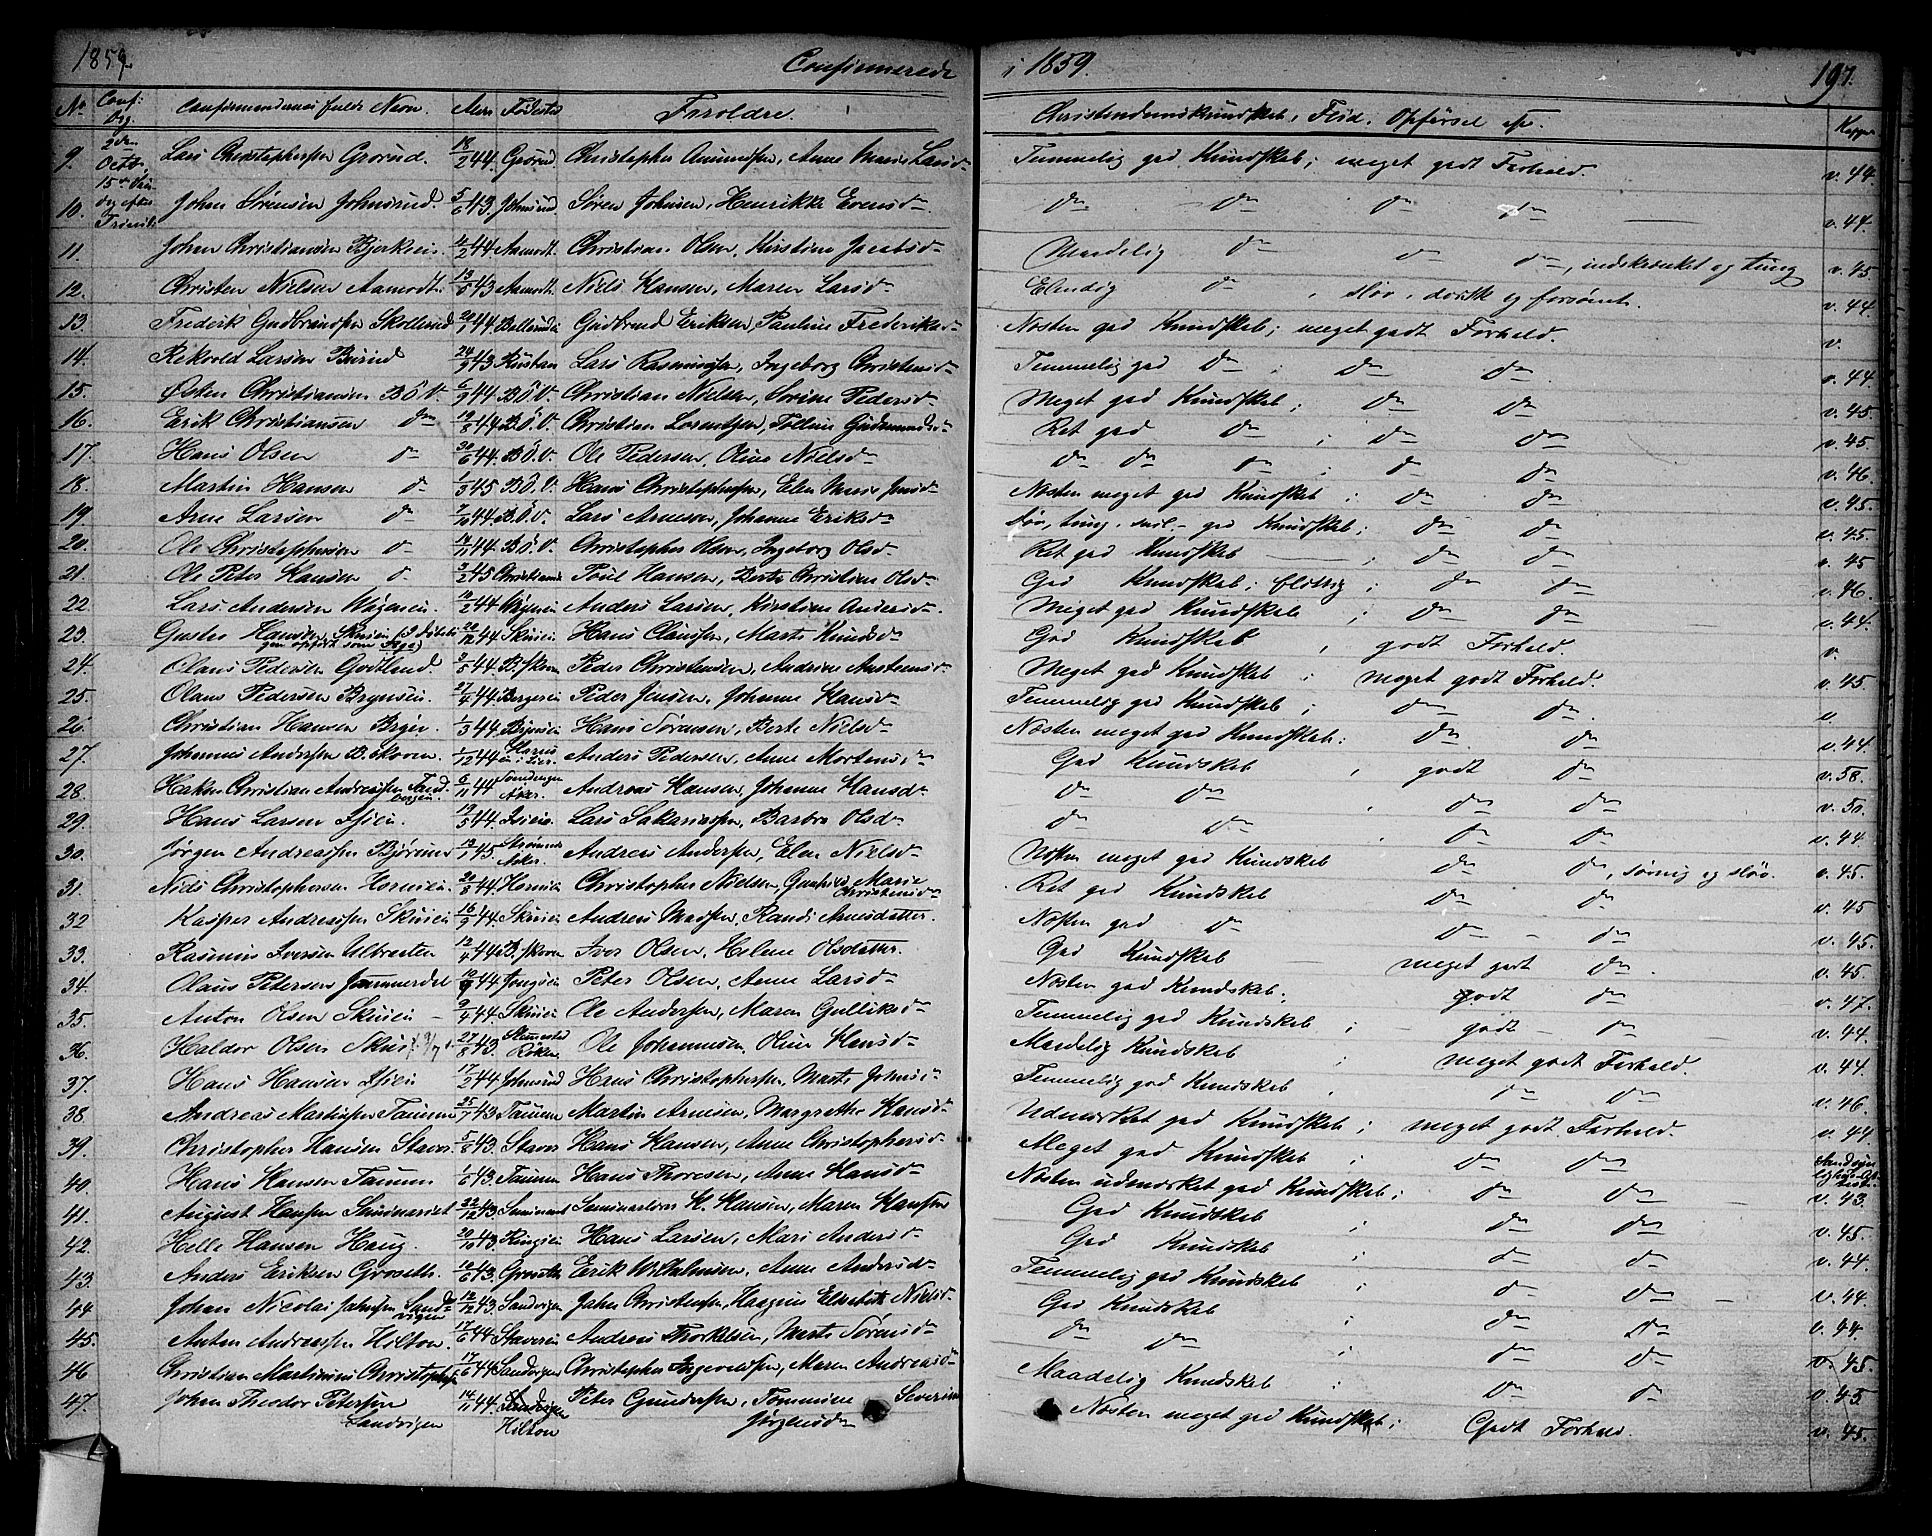 1859. Confirmerede i 1859. 197.
No Conf: Dag. Confirmandernes fulde Navn. Alder Fødested Foroldre. Christendomskundskab, Flid, Opførsel etc. Kopper
9. 2den Octbr. Lars Christophersen Grorud. 18/2 44. Grorud Christopher Amundsen, Anne Marie Larsd Temmelig god Kundskab; meget godt Forhold. v. 44.
10. 15de Søndag efter Trinit. Johan Sörensen Johnsrud. 5/6 43. Johnsrud Sören Johnsen, Henrikke Evensd do do do do v. 44.
11. Johan Christiansen Bjerkeien. 2/2 44 Aamodt. Christian Olsen, Kirstine Jacobsd Maadelig do do do, indskrænket og tung v. 45
12. Christen Nielsen Aamodt. 13/5 43 Aamodt. Niels Hansen, Maren Larsd Elendig do, sløv, dorsk og forsømt. v. 44
13. Frederik Gudbrandsen Skollerud 20/1 44 Gudbrand Eriksen, Pauline Frederiksd Næsten god Kundskab; meget godt Forhold. v.
14. Larsen 24/9 43 Lars Rasmussen, Ingeborg Christensd Temmelig god do; do do. v. 44
15. Østen Christiansen B.Ö.V. 6/9 44. B.Ö.V. Christian Nielsen, Sorine Pedersd Meget god Kundskab; do do v. 45.
16. Erik Christiansen do 19/8 44 B.Ö.V. Christian Lorentsen, Golline Gudmundsd Ret god do; do do v. 45.
17. Hans Olsen do 30/6 44. B.Ö.V. Ole Pedersen, Oline Nielsd do do do; do do v. 46.
18. Martin Hansen do 1/3 45 B.Ö.V. Hans Christophersen, Elen Marie Jensd Næsten meget god Kundskab; do do v. 45.
19. Arne Larsen do 7/10 44. B.Ö.V. Lars Arnesen, Johanne Eriksd tung, god Kundskab; do do v. 45.
20. Ole Christophersen do 14/11 44. B.Ö.V. Christopher Olsen, Ingeborg Olsd Ret god Kundskab; do do v. 45
21. Ole Peter Hansen do 3/2 45 Christiania Poul Hansen, Berte Christine Olsd God Kundskab; flittig; do do v. 46.
22. Lars Andersen 10/2 44 Anders Larsen, Kirstine Andersd. Meget god Kundskab; do do v. 44.
23. Gustav Hansen, Skuien (I gen opført som Pige) 20/12 44 Skuien Hans Claussen, Marte Knudsd God Kundskab, godt Forhold. v.
24. Olaus Pedersen Godtland. 3/5 44. B. Skoven Peder Christensen, Andrine Anstensd Meget god Kundskab; meget godt Forhold. v. 45.
25. Olaus Pedersen 27/4 44. Peder Jensen, Johanne Hansd Temmelig god Kundskab; do do. v
26. Christian Hansen 1/3 44. Hans Sörensen, Berte Nielsd Næsten meget god Kundskab; do do v. 44
27. Johannes Andersen B. Skoven. 1/12 44 i Lier. Anders Pedersen, Anne Mortensd God Kundskab, godt do v. 58.
28. Hakon Christian Andreassen Sandvigen. 6/11 44 Sandvigen Asker. Andreas Hansen, Johanne Hansd do do, do do v. 50.
29. Hans Larsen Isiei. 19/5 44. Isieie. Lars Sakariassen, Barbra Olsd do do. do do v. 44.
30. Jörgen Andreassen Bjørum 13/1 45. Asker. Andreas Andersen, Elen Nielsd Næsten meget god Kundskab do do, sövnig og sløv. v. 45.
31. Niels Christophersen Horniei. 20/8 44. Horniei Christopher Nielsen, Gunhild Marie Christensd Ret god Kundskab do do v. 45
32 Kasper Andreassen Skuiei 16/9 44. Skuiei Andreas Madssen, Randi Arnesdatter. Næsten god do do - do v. 45.
33. Rasmus Iversen Ulbraaten 12/4 44 B. Skoven Iver Olsen, Helene Olsdatter. God Kundskab meget godt do. v. 45.
34. Olaus Petersen Jammerdal 10/9 44 Jongseie Peter Olsen, Anne Larsd Næsten god Kundskab; godt do v. 47.
35. Anton Olsen Skuiei 9/4 44. Skuiei Ole Andersen, Maren Gulliksd Temmelig god Kundskab; godt - do v. 44.
36. Haldor Olsen 27/8 43. Röken. Ole Johannesen, Oline Hansd Maadelig Kundskab; meget godt Forhold. v. 44.
37. Hans Hansen Isiei 17/2 44 Johnsrud Hans Christophersen, Marte Johnsd Temmelig god Kundskab, do do v. 46.
38. Andreas Martinsen Tanum 25/7 43. Tanum Martin Arnesen, Margrethe Hansd Udmærket god Kundskab; meget godt Forhold. v. 44
39. Christopher Hansen Staver. 5/8 43. Staver Hans Hansen, Anne Christophersd Meget god Kundskab; do do
40. Hans Hansen Tanum 1/6 43. Tanum Hans Thoresen, Anne Hansd Næsten udmærket god Kundskab; do do v. 43.
41. August Hansen Seminariet 22/12 43. Seminariet Seminarlærer H. Hansen, Maren Hansen God Kundskab; do do v. 45.
42. Helle Hansen Haug. 20/10 43. Hans Larsen, Mari Andersd God Kundskab; do do v. 44.
43. Anders Eriksen Groseth. 10/6 43. Groseth Erik Wilhelmsen, Anne Andersd Temmelig god Kundskab; do do v. 44.
44. Johan Nicolai Johnsen Sandvigen 12/12 43. Sandvigen John Christensen, Haagine Elisabeth Nielsd God Kundskab do do v. 44
45. Anton Andreassen Hilton. 17/6 44 Staverie Andreas Thorkelsen, Marte Sörensd do do; do do v. 45.
46 Christian Martinius Christophs. 17/6 44 Sandvigen Christopher Ingevoldsen, Maren Andreasd Maadelig Kundskab; do do v. 43.
47. Johan Theodor Petersen Sandvigen 14/11 44. Sandvigen Hilton Peter Gundersen, Tommine Severine Jörgensd Næsten meget god Kundskab; Godt Forhold. v. 45.